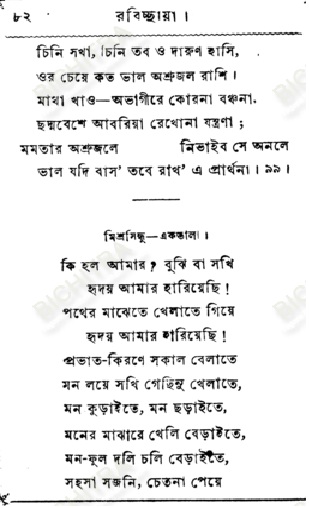 ৮২ রবিচ্ছায়া।
চিনি সখা, চিনি তব ও দারুণ হাসি,
ওর চেয়ে কত ভাল অশ্রুজল রাশি।
মাথা খাও—অভাগীরে কোরনা বঞ্চনা,
ছদ্মবেশে আবরিয়া রেখোনা যন্ত্রণা;
মমতার অশ্রুজলে নিভাইব সে অনলে
ভাল যদি বাস' তবে রাখ' এ প্রার্থনা। ৯৯।
মিশ্রসিন্ধু—একতালা।
কি হল আমার? বুঝি বা সখি
হৃদয় আমার হারিয়েছি!
পথের মাঝেতে খেলাতে গিয়ে
হৃদয় আমার হারিয়েছি!
প্রভাত-কিরণে সকাল বেলাতে
মন লয়ে সখি গেছিনু খেলাতে,
মন কুড়াইতে, মন ছড়াইতে,
মনের মাঝারে খেলি বেড়াইতে,
মন-ফুল দলি চলি বেড়াইতে,
সহসা সজনি, চেতনা পেয়ে